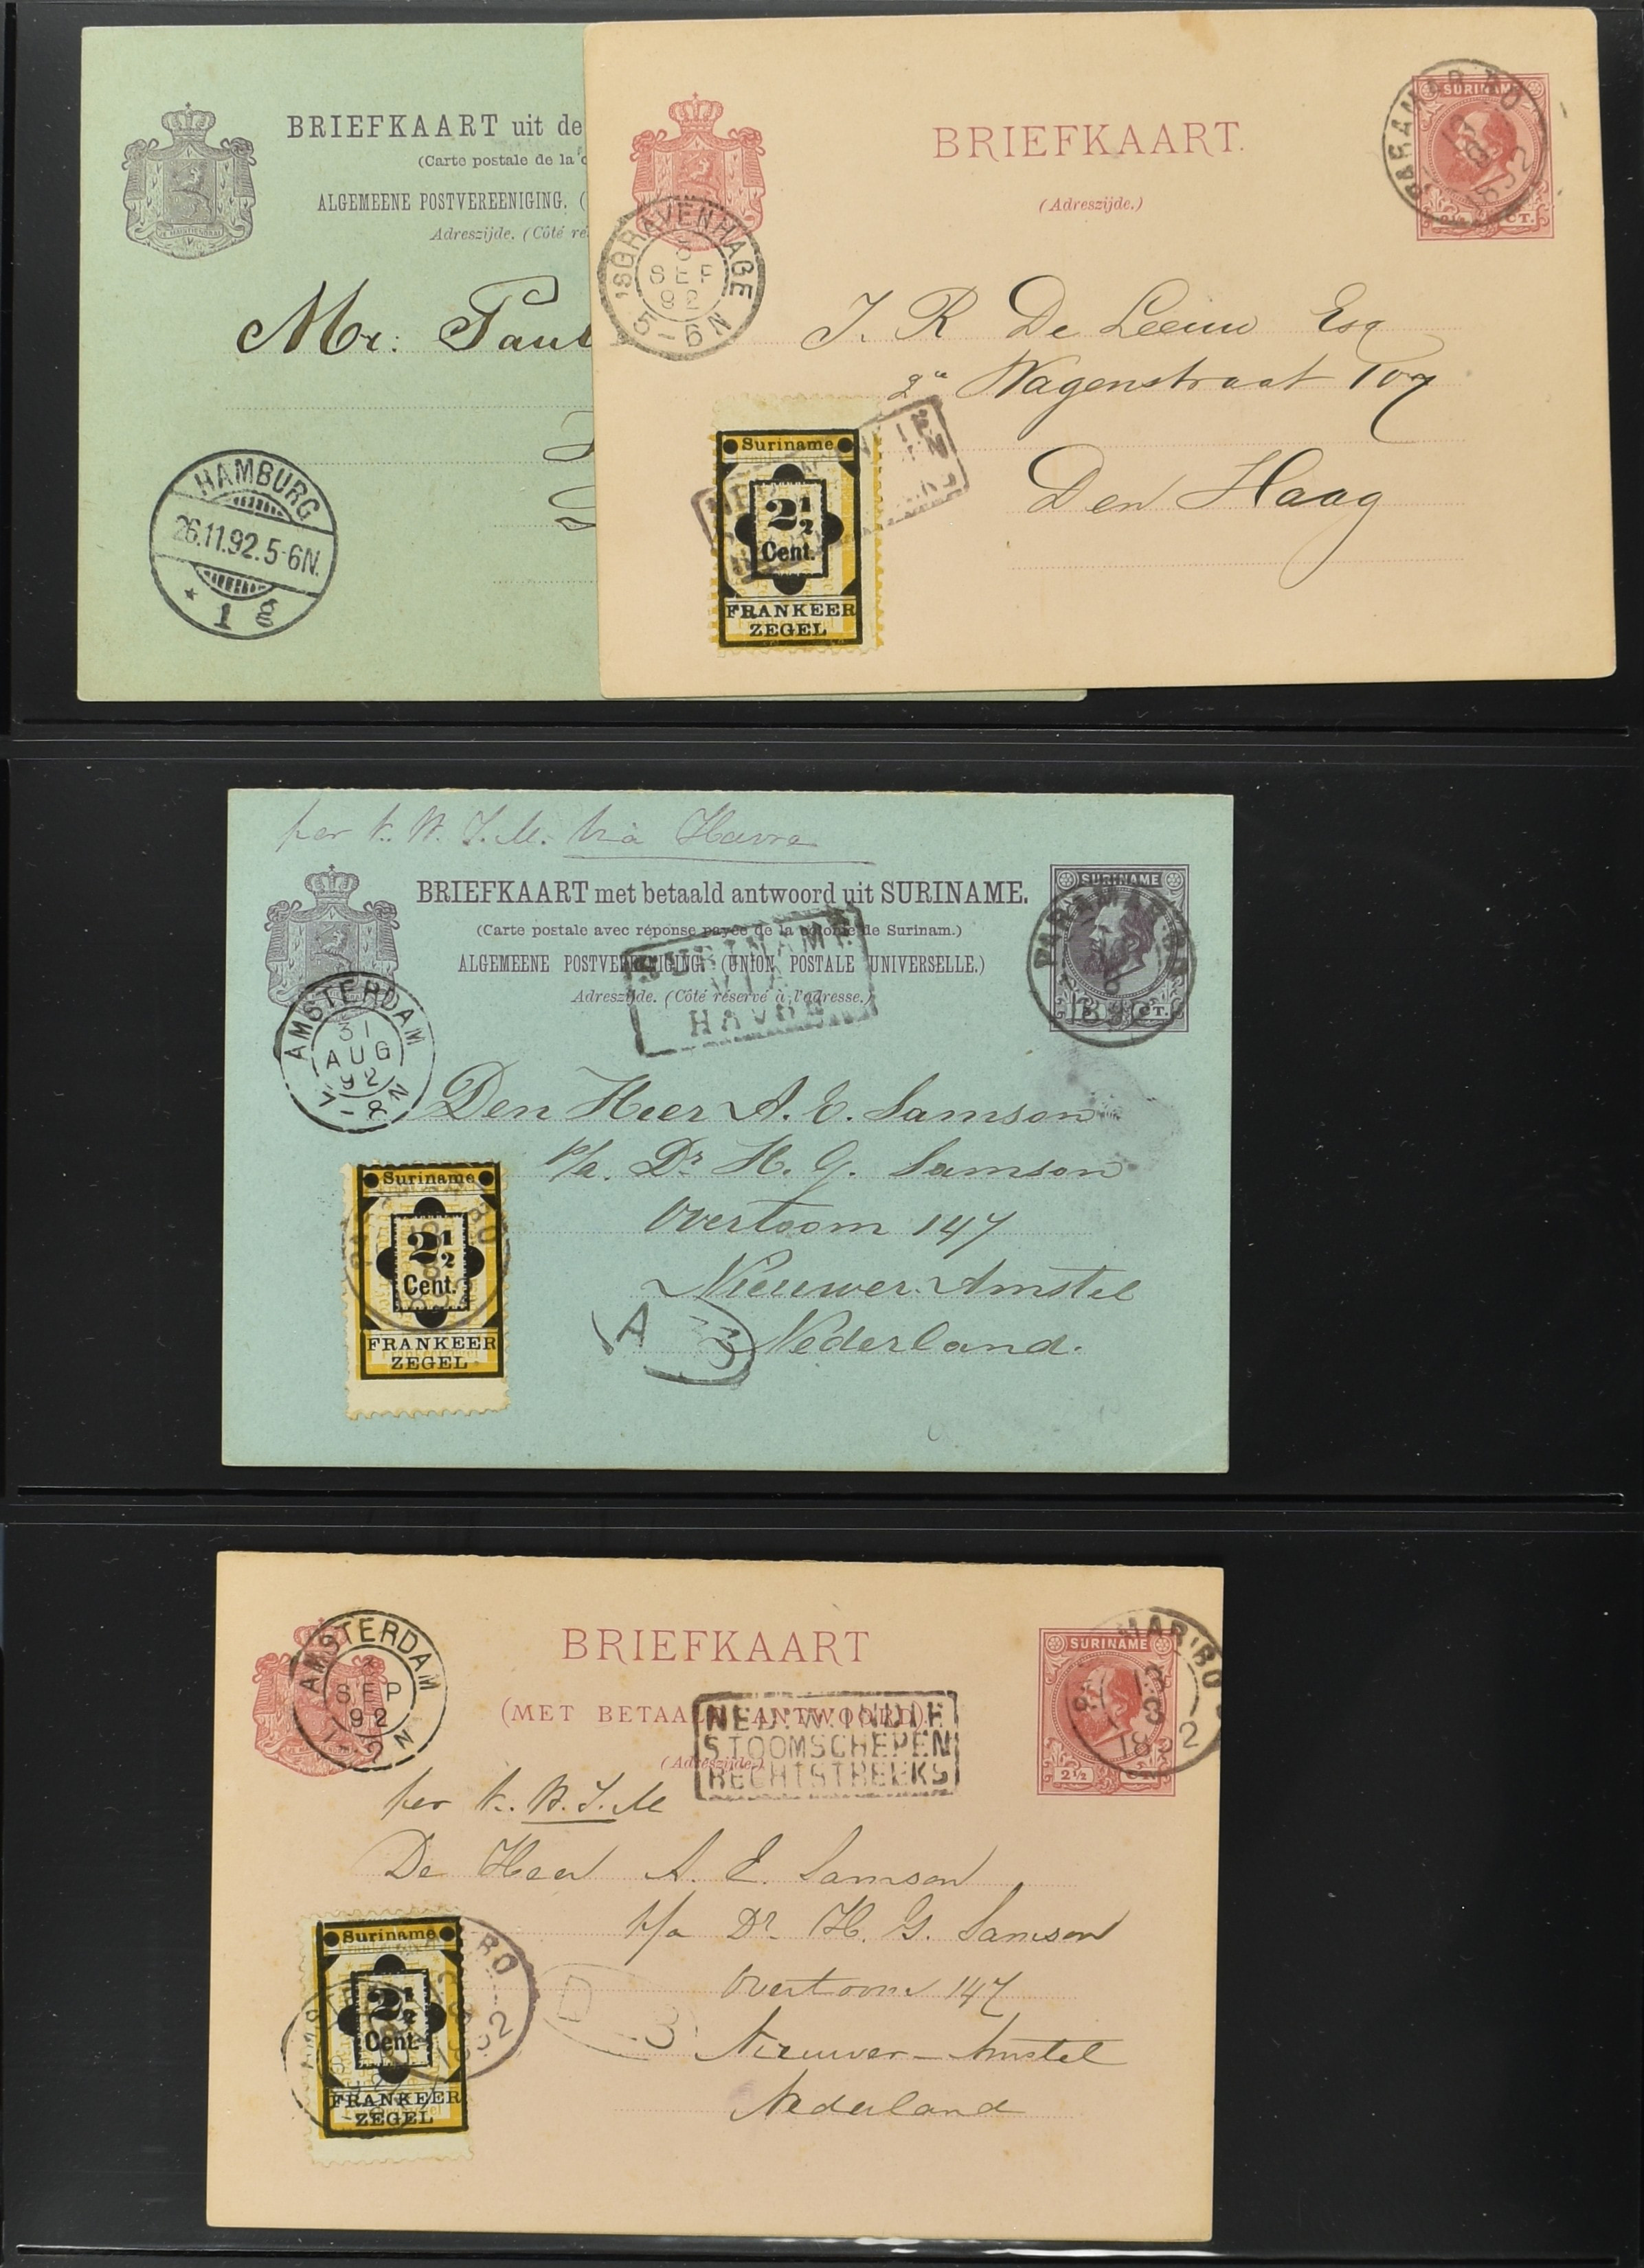 BRIEFKAART uit de
(Carte postale de la c
ALGEMEENE POSTVEREENIGING. (
Adreszijde. (Côté ré
Mr. Paul
HAMBURG
26.11.92.5-6N.
* 1 g
BRIEFKAART.
(Adreszijde.)
SURINAME
CT.
PARAMARIBO
1892
'SGRAVENHAGE
SEP
92
5-6N
J. R De Leeuw Esq
Wagenstraat 107
Den Haag
Suriname
2½
Cent.
FRANKEER
ZEGEL
per K. W. I. M. via Havre
BRIEFKAART met betaald antwoord uit SURINAME.
(Carte postale avec réponse payée de la colonie de Surinam.)
ALGEMEENE POSTVEREENIGING. (UNION POSTALE UNIVERSELLE.)
Adreszijde. (Côté réservé à l'adresse.)
SURINAME
VIA
HAVRE
SURINAME
CT.
PARAMARIBO
AMSTERDAM
31
AUG
92
7-8N
Den Heer A. E. Samson
p/a. Dr H. G. Samson
Overtoom 147
Nieuwer-Amstel
Nederland.
A
Suriname
2½
Cent.
FRANKEER
ZEGEL
BRIEFKAART
(MET BETAALD ANTWOORD).
(Adreszijde.)
NED: W: INDIE
STOOMSCHEPEN
RECHTSTREEKS
SURINAME
2½ CT.
AMSTERDAM
SEP
92
per K. W. I. M
De Heer A. E. Samson
p/a Dr H. G. Samson
Overtoom 147
Nieuwer-Amstel
Nederland
Suriname
2½
Cent.
FRANKEER
ZEGEL